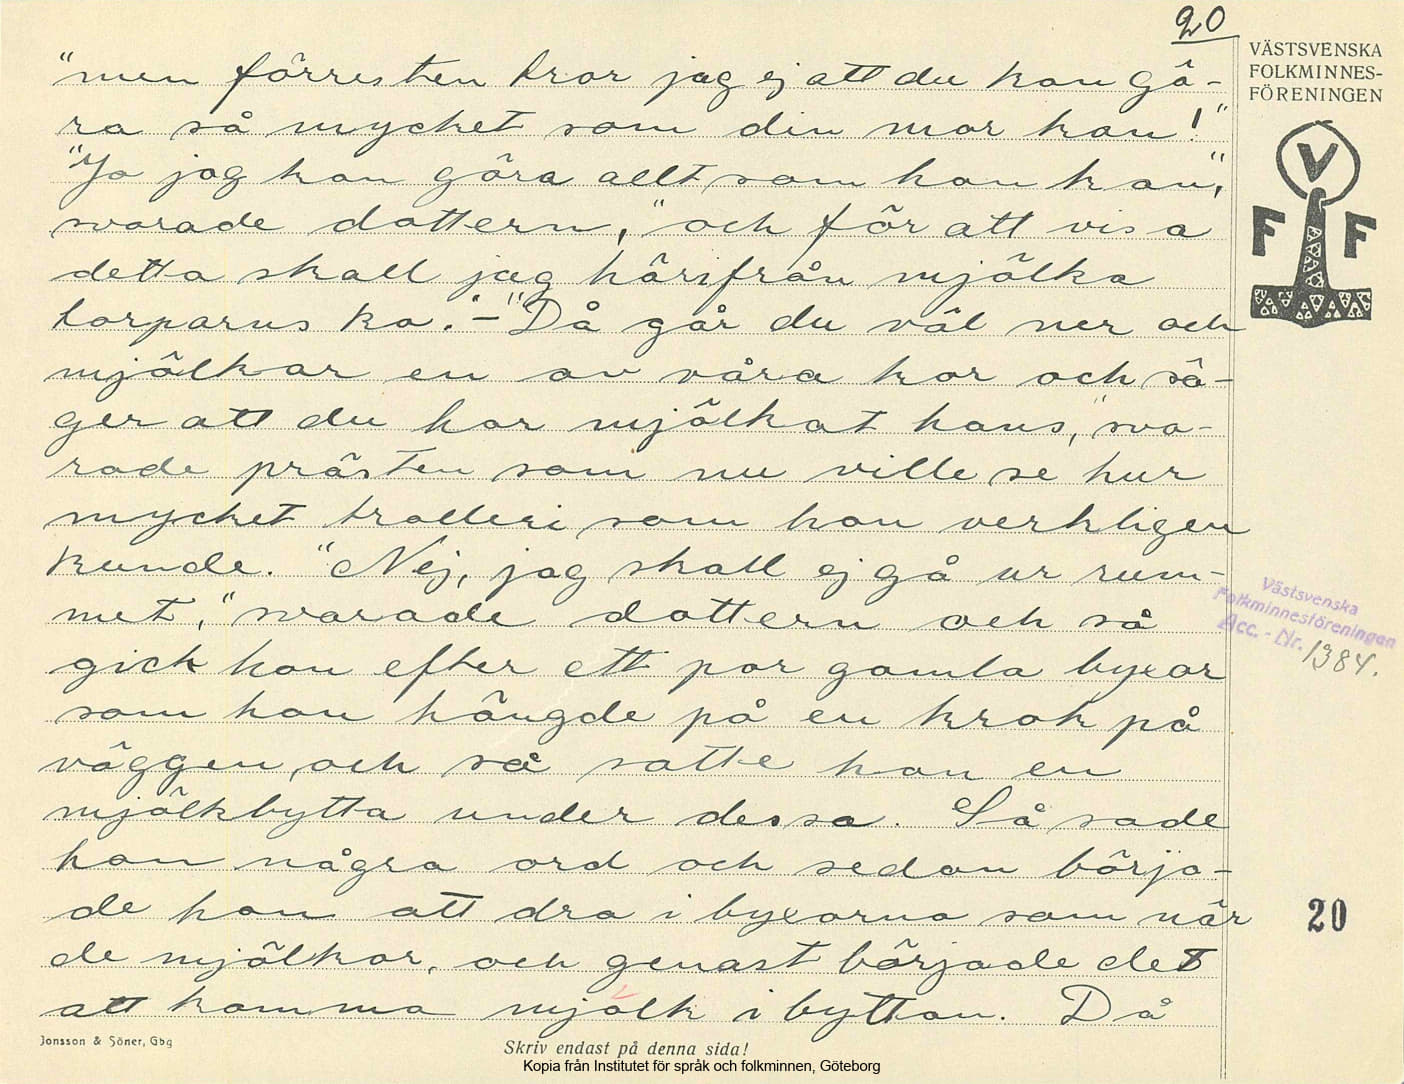 20
VÄSTSVENSKA
FOLKMINNES-
FÖRENINGEN
V
F F
"men förresten tror jag ej att du kan gö-
ra så mycket som din mor kan!"
"Jo jag kan göra allt som hon kan",
svarade dottern, "och för att visa
detta skall jag härifrån mjölka
torparns ko." – "Då går du väl ner och
mjölkar en av våra kor och sä-
ger att du har mjölkat hans," sva-
rade prästen som nu ville se hur
mycket trolleri som hon verkligen
kunde. "Nej, jag skall ej gå ur rum-
met," svarade dottern och så
gick hon efter ett par gamla byxor
som hon hängde på en krok på
väggen, och så satte hon en
mjölkbytta under dessa. Så sade
hon några ord och sedan börja-
de hon att dra i byxorna som när
de mjölkar, och genast började det
att komma mjölk i byttan. Då
Västsvenska
Folkminnesföreningen
Acc. - Nr. 1384.
20
Jonsson & Söner, Gbg
Skriv endast på denna sida!
Kopia från Institutet för språk och folkminnen, Göteborg